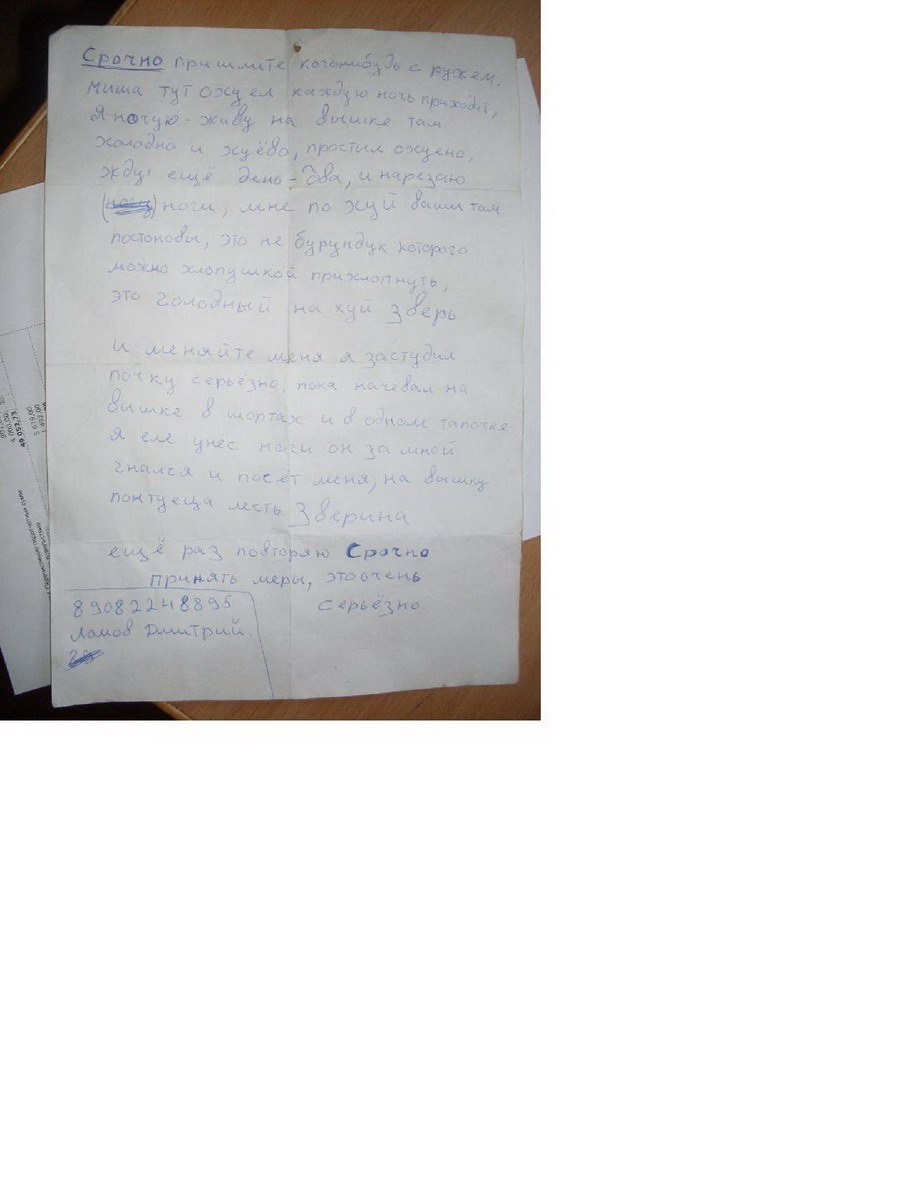 Срочно пришлите когонибудь с ружём.
Миша тут охуел каждую ночь приходит,
Я ночую - живу на вышке там
холодно и хуёво, простыл охуено,
жду ещё день - два, и нарезаю
ноги, мне по хуй ваши там
постоновы, это не бурундук которого
можно хлопушкой прихлопнуть,
это голодный на хуй зверь
И меняйте меня я застудил
почку серьёзно, пока начевал на
вышке в шортах и в одном тапочке
Я еле унёс ноги он за мной
гнался и посёт меня, на вышку
понтуеща месть Зверина
ещё раз повторяю Срочно
принять меры, это очень
серьёзно
89082248895
Ламов Дмитрий.